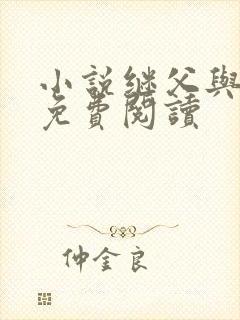 小説继父與
免費閱讀
仲金良